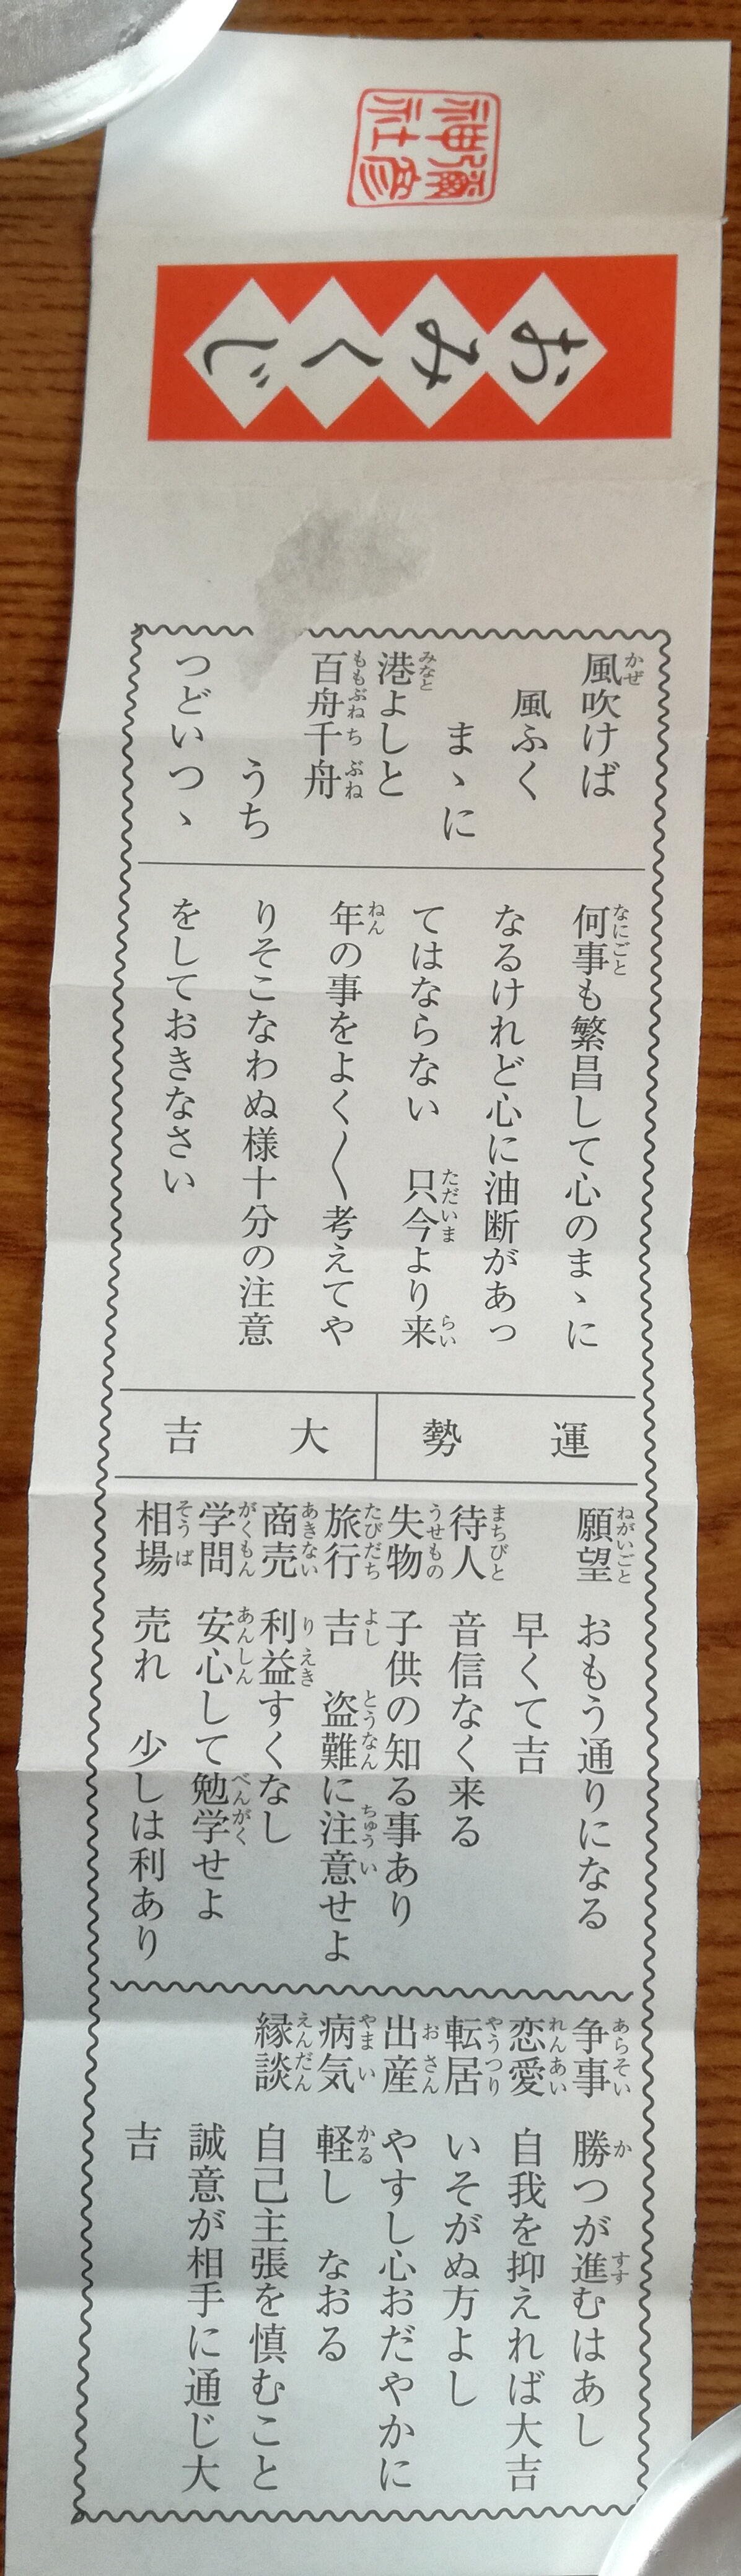 彌彦
神社
おみくじ
風吹けば
風ふく
まゝに
港よしと
百舟千舟
うち
つどいつゝ
何事も繁昌して心のまゝに
なるけれど心に油断があっ
てはならない　只今より来
年の事をよく〳〵考えてや
りそこなわぬ様十分の注意
をしておきなさい
運勢
大吉
願望　おもう通りになる
早くて吉
待人　音信なく来る
失物　子供の知る事あり
旅行　吉　盗難に注意せよ
商売　利益すくなし
学問　安心して勉学せよ
相場　売れ　少しは利あり
争事　勝つが進むはあし
恋愛　自我を抑えれば大吉
転居　いそがぬ方よし
出産　やすし心おだやかに
病気　軽し　なおる
縁談　自己主張を慎むこと
誠意が相手に通じ大
吉